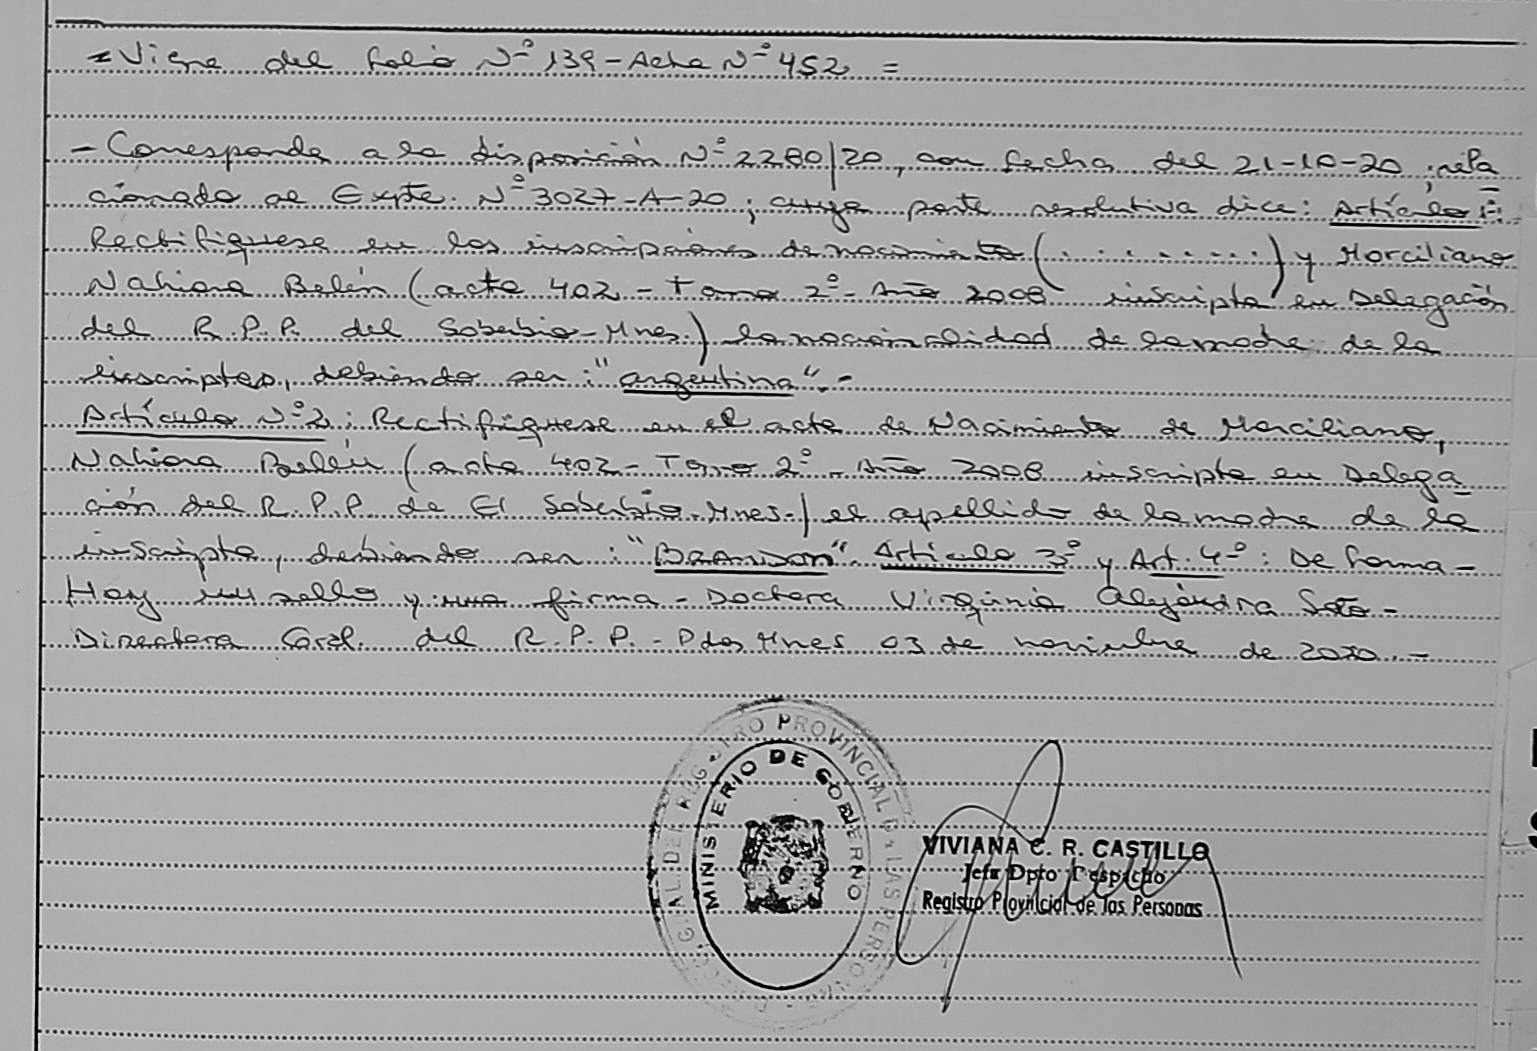 = Viene del folio Nº 139 - Acta Nº 452 =
- Corresponde a la disposición Nº 2280/20, con fecha del 21-10-20; rela
cionado al Expte. Nº 3027-A-20; cuya parte resolutiva dice: Artículo 1º:
Rectifiquese en las inscripciones de nacimiento (..........) y Marciliano
Nahiara Belén (acta 402 - Tomo 2º - Año 2008 inscripta en Delegación
del R.P.P. del Soberbio - Mnes.) la nacionalidad de la madre de la
inscriptas, debiendo ser: "argentina".-
Artículo Nº 2: Rectifiquese en el acta de Nacimiento de Marciliano,
Nahiara Belén (acta 402 - Tomo 2º - Año 2008 inscripta en Delega
ción del R.P.P. de El Soberbio. Mnes.-) el apellido de la madre de la
inscripta, debiendo ser: "BRANDON". Artículo 3º y Art. 4º: De forma -
Hay un sello y una firma - Doctora Virginia Alejandra Soto -
Directora Gral. del R.P.P. - Pdas Mnes 03 de noviembre de 2020. -
DIRECC. GRAL. DEL REGISTRO PROVINCIAL DE LAS PERSONAS
MINISTERIO DE GOBIERNO
VIVIANA C. R. CASTILLO
Jefa Dpto Despacho
Registro Provincial de las Personas